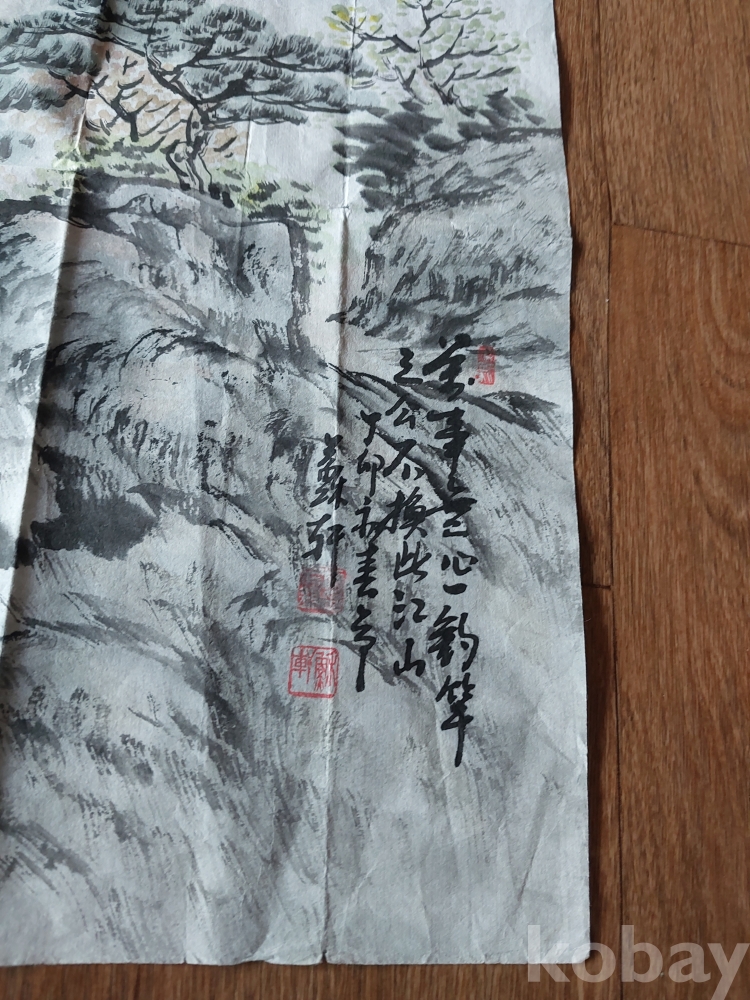 萬事無心一釣竿
三公不換此江山
丁卯初春
蘇軒
kobay